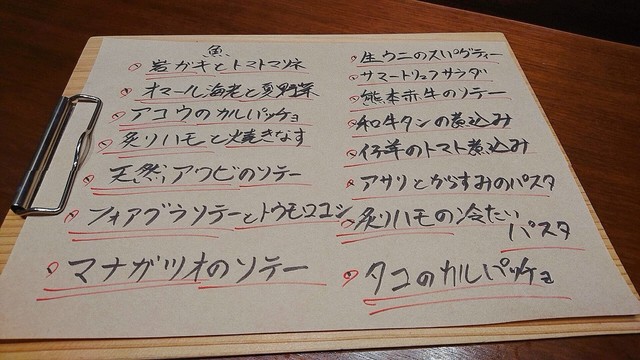 魚
岩ガキとトマトマリネ
オマール海老と夏野菜
アコウのカルパッチョ
炙りハモと焼きなす
天然アワビのソテー
フォアグラソテーとトウモロコシ
マナガツオのソテー
生ウニのスパゲティー
サマートリュフサラダ
熊本赤牛のソテー
和牛タンの煮込み
仔羊のトマト煮込み
アサリとからすみのパスタ
炙りハモの冷たい
パスタ
タコのカルパッチョ